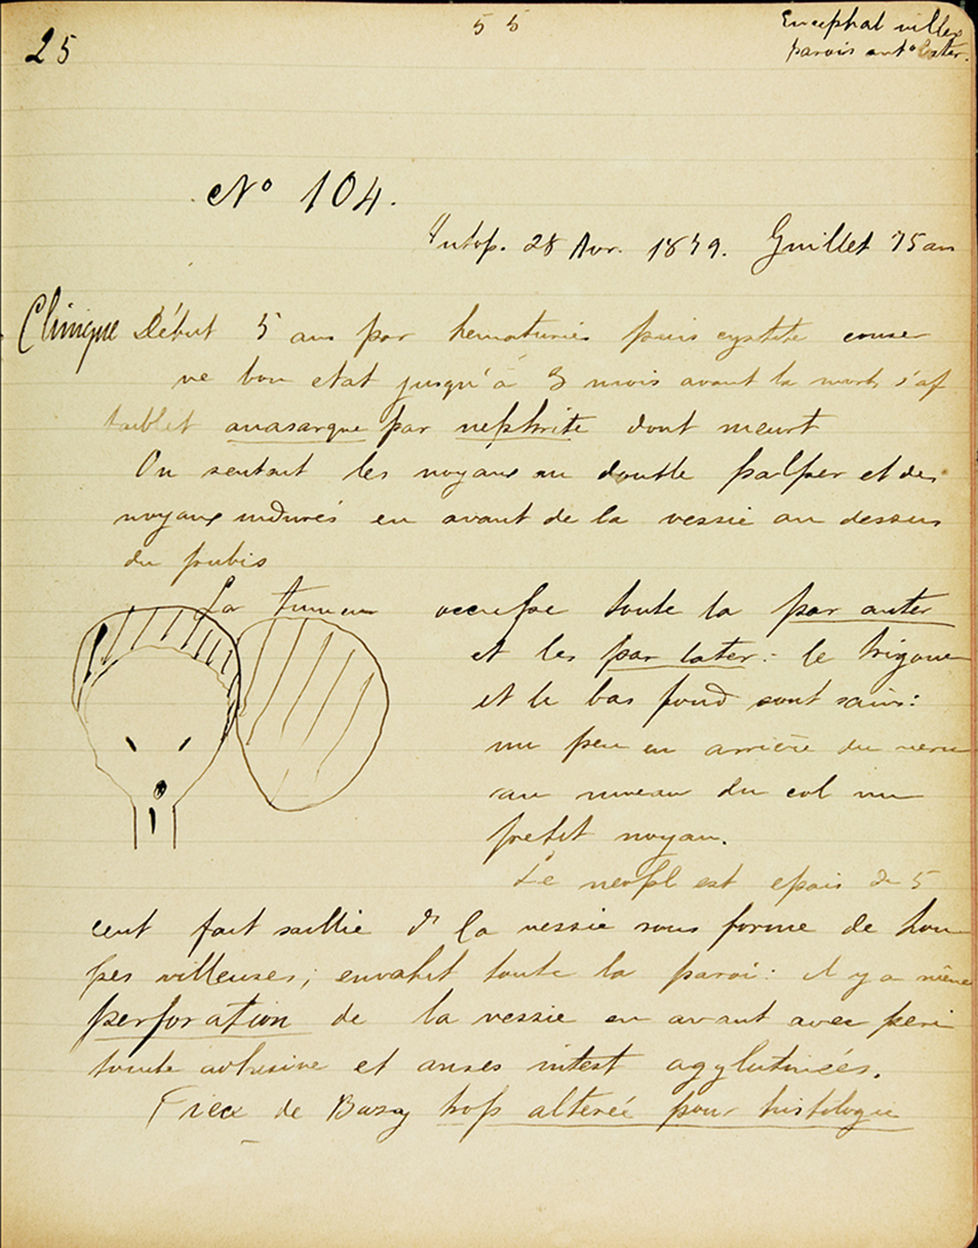 25
55
Encephal villeux
parois antº later.
Nº 104.
Autop. 28 Avr. 1879. Guillet 75 ans
Clinique Début 5 ans par hematuries puis cystite conser
ve bon etat jusqu'à 3 mois avant la mort, s'af
faiblit anasarque par nephrite dont meurt
On sentait les noyaux au double palper et des
noyaux indurés en avant de la vessie au dessus
du pubis
La tumeur occupe toute la par anter
et les par later: le trigone
et le bas fond sont sains:
un peu en arrière du veru
au niveau du col un
petit noyau.
Le neopl est epais de 5
cent fait saillie ds la vessie sous forme de hou
pes villeuses; envahit toute la paroi: il y a même
perforation de la vessie en avant avec peri
tonite adhesive et anses intest agglutinées.
Piece de Bazy trop alterée pour histologie